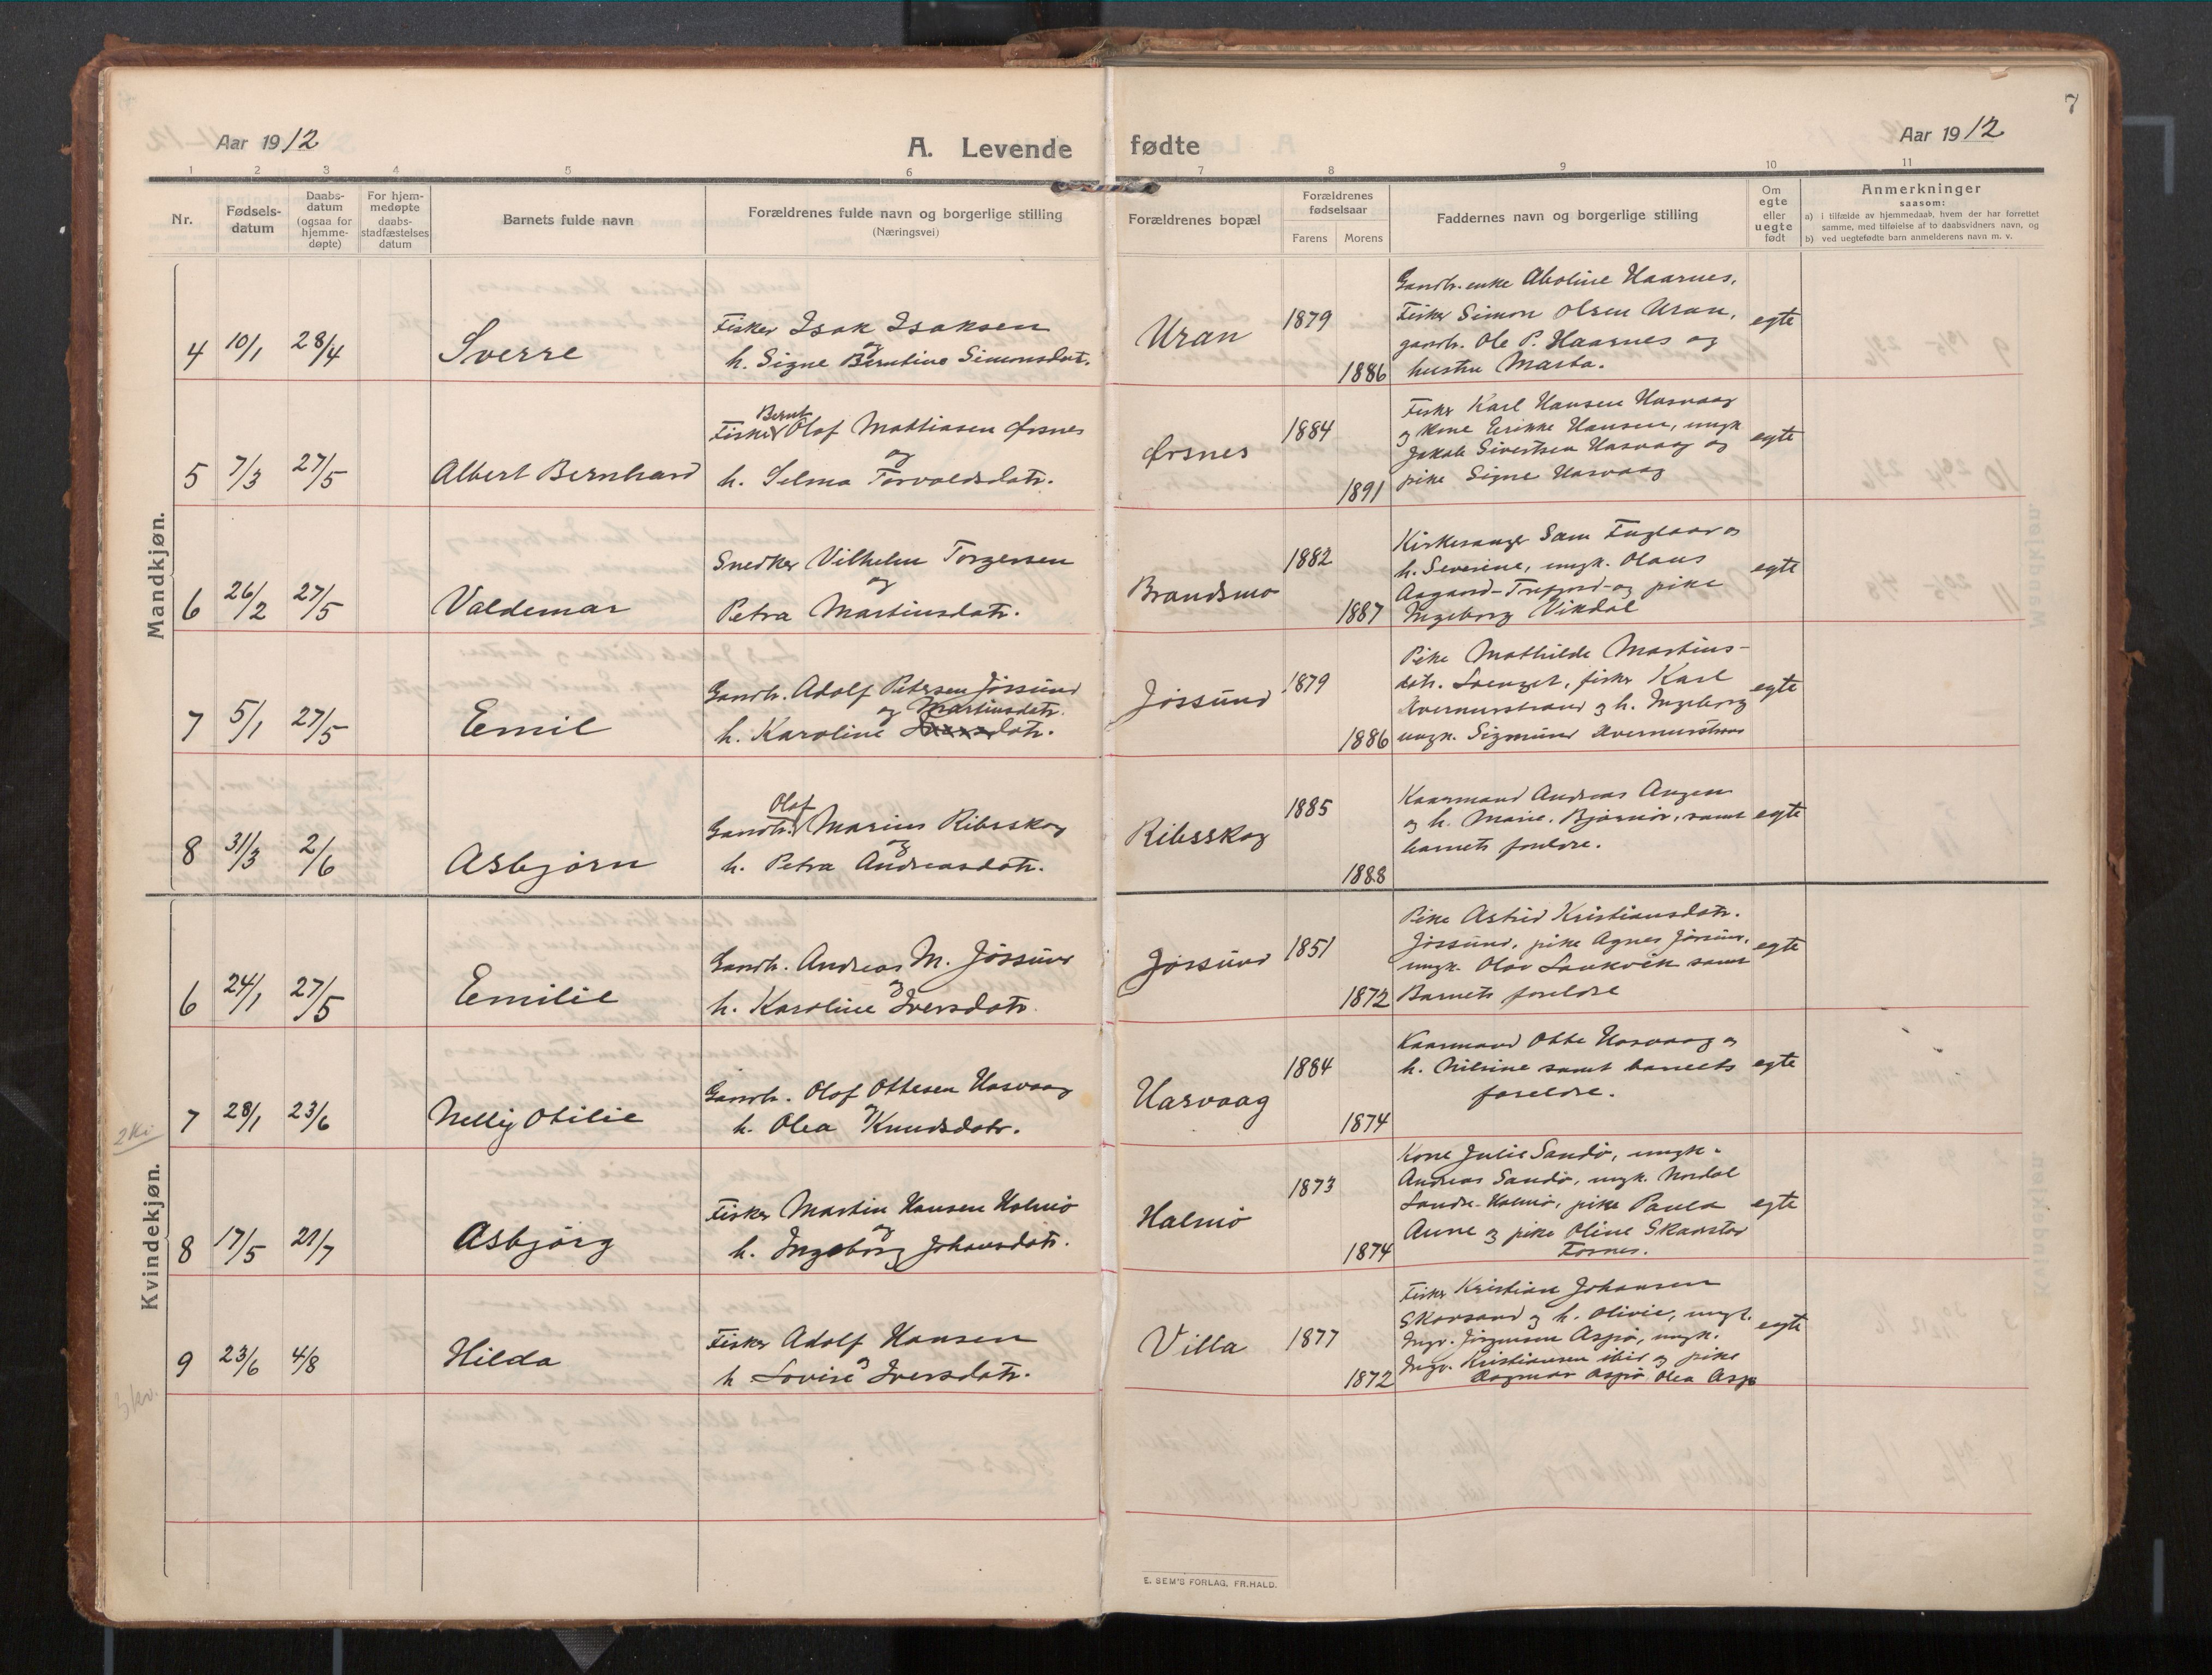 7
Aar 1912
A. Levende fødte
Aar 1912
1 2 3 4 5 6 7 8 9 10 11
Nr.
Fødsels-
datum
Daabs-
datum
(ogsaa for
hjemme-
døpte)
For hjem-
medøpte
daabs-
stadfæstelses
datum
Barnets fulde navn
Forældrenes fulde navn og borgerlige stilling
(Næringsvei)
Forældrenes bopæl
Forældrenes
fødselsaar
Farens Morens
Faddernes navn og borgerlige stilling
Om
egte
eller
uegte
født
Anmerkninger
saasom:
a) i tilfælde av hjemmedaab, hvem der har forrettet
samme, med tilføielse af to daabsvidners navn, og
b) ved uegtefødte barn anmelderens navn m. v.
Mandkjøn.
4 10/1 28/4 Sverre
Fisker Isak Isaksen
og
h. Signe Berntine Simonsdatr.
Uran
1879
1886
Gaardbr. enke Aboline Haarnes,
Fisker Simon Olsen Uran,
gaardb. Ole P. Haarnes og
hustru Marta.
egte
5 7/3 27/5 Albert Bernhard
Bernt
Fisker Olaf Mattiasen Ørsnes
og
h. Selma Torvaldsdatr.
Ørsnes
1884
1891
Fisker Karl Hansen Hasvaag
og kone Erikke Hansen, ungk.
Jakob Sivertsen Hasvaag og
pike Signe Hasvaag
egte
6 26/2 27/5 Valdemar
Snedker Vilhelm Torgersen
og
Petra Martinusdatr.
Brandsmo
1882
1887
Kirkesanger Sam Fuglaar og
h. Severine, ungk. Olaus
Aagard-Trefjord og pike
Ingeborg Vikdal
egte
7 5/1 27/5 Emil
Gaardb. Adolf Petersen Jøssund
og Martinusdatr.
h. Karoline datr.
Jøssund
1879
1886
Pike Mathilde Martinus-
datr. fisker Karl
Kvernurstrand og h. Ingeborg
ungk. Sigmund Kvernurstrand
egte
8 31/3 2/6 Asbjørn
Olaf
Gaardb. Marius Ribsskog
og
h. Petra Andreasdatr.
Ribsskog
1885
1888
Kaarmand Andreas Angen
og h. Marie, Bjørnør, samt
barnets foreldre.
egte
Kvindekjøn.
6 24/1 27/5 Emilie
Gaardb. Andreas M. Jøssund
og
h. Karoline Iversdatr.
Jøssund
1851
1872
Pike Astrid Kristiansdatr.
Jøssund, pike Agnes Jøssund,
ungk. Olav Laukvik samt
Barnets foreldre
egte
2 kv
7 28/1 23/6 Nellij Otilie
Gaardb. Olaf Ottesen Hasvaag
og
h. Olea Knudsdatr.
Hasvaag
1884
1874
Kaarmand Otte Hasvaag og
h. Nilsine samt barnets
foreldre.
egte
8 17/5 21/7 Asbjørg
Fisker Martin Hansen Holmø
og
h. Ingeborg Johansdatr.
Halmø
1873
1874
Kone Julie Sandø, ungk.
Andreas Sandø, ungk. Nordal
Sandø-Holmø, pike Paula
Aune og pike Oline Skaanstad
Fosnes.
egte
9 23/6 4/8 Hilda
Fisker Adolf Hansen
og
h Lovise Iversdatr.
Villa
1877
1872
Fisker Kristian Johansen
Skorsand og h. Olivie, ungk.
Ingv. Jørgensen Aspø, ungk.
Ingv. Kristiansen ibid og pike
Dagmar Aspø Olea Aspø
egte
3 kv.
E. SEM'S FORLAG, FR.HALD.